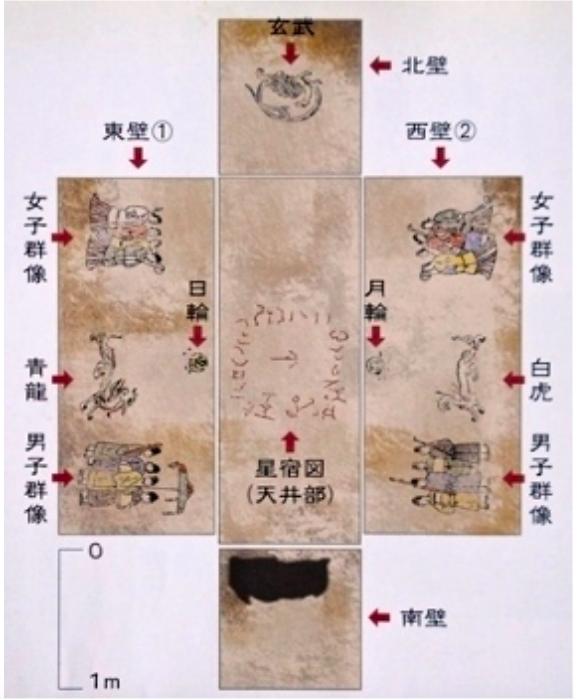 玄武
北壁
東壁①
西壁②
女子群像
女子群像
日輪
月輪
青龍
白虎
男子群像
男子群像
星宿図
(天井部)
0
南壁
1m